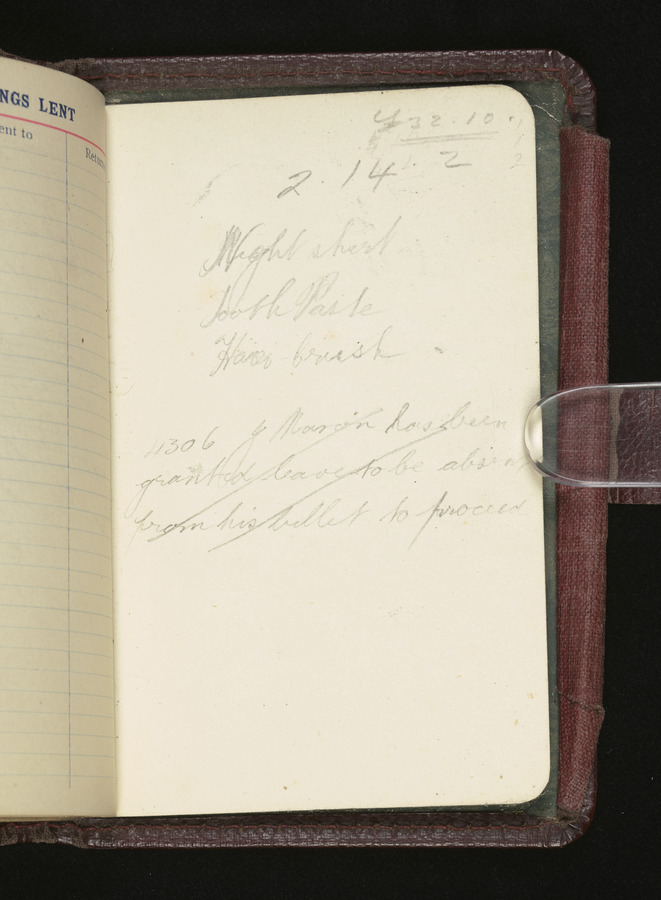 NGS LENT
ent to
Retu
32.10.
2.14.2
Night shirt
Tooth Paste
Hair brush
11306 J Marion has been
granted leave to be absent
from his billet to proceed